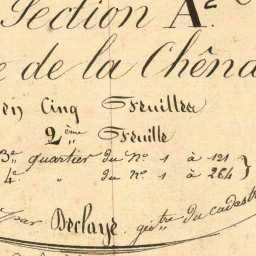 Section A.e
de la Chên
en Cinq Feuilles
2ème Feuille
3e quartier du No 1 à 121
4e „ du No 1 à 264 }
par Declaye géotre du cadast